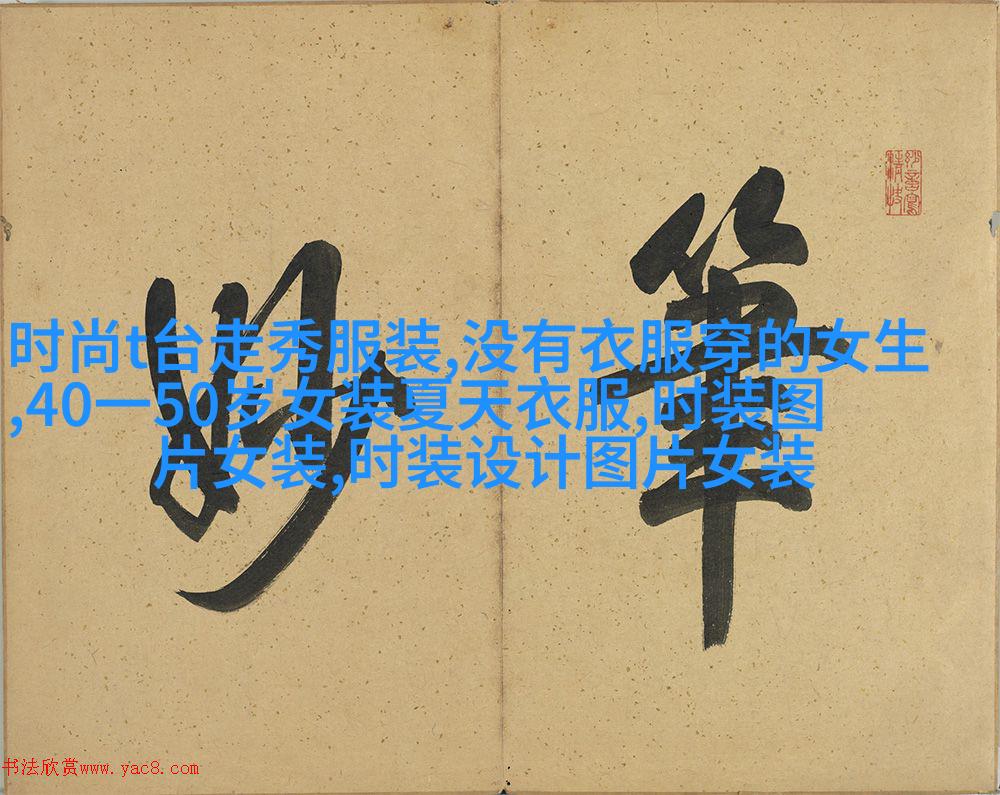 時尚t台走秀服装,没有衣服穿的女生
,40一50岁女装夏天衣服,时装图
片女装,时装设计图片女装
筆
妙
书法欣赏www.yac8.com